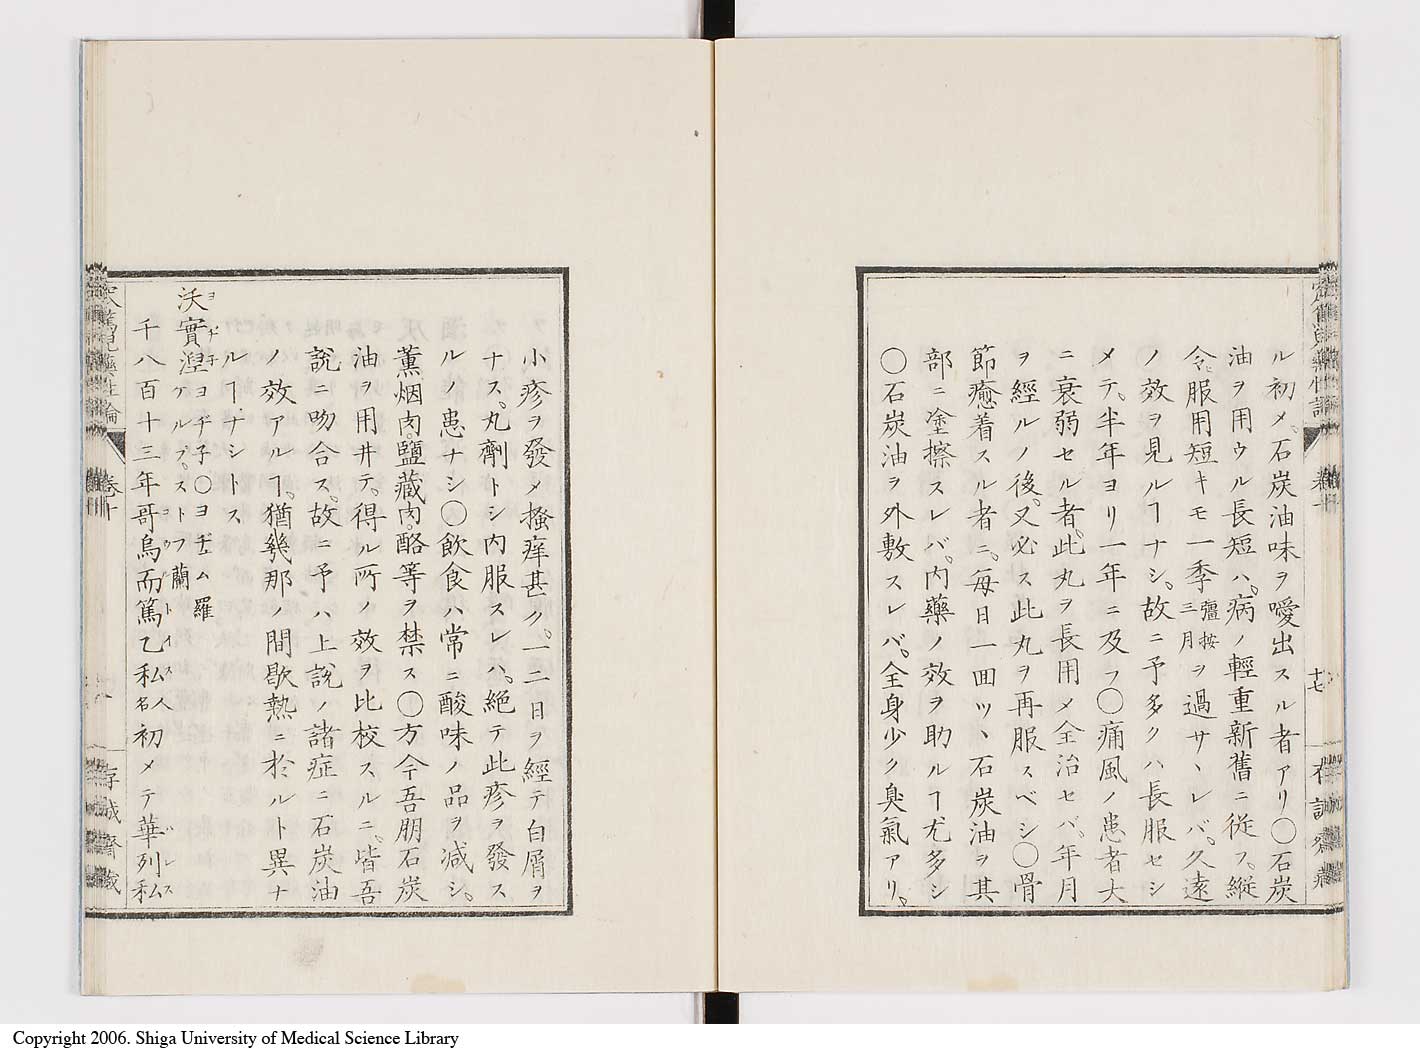 ル初メ。石炭油味ヲ噯出スル者アリ〇石炭
油ヲ用ウル長短ハ。病ノ輕重新舊ニ從フ。縱
令ヒ服用短キモ一季彊按三月ヲ過サヽレバ。久遠
ノ效ヲ見ルヿナシ。故ニ予多クハ長服セシ
メテ。半年ヨリ一年ニ及フ〇痛風ノ患者大
ニ衰弱セル者。此丸ヲ長用メ全治セバ。年月
ヲ經ルノ後。又必ス此丸ヲ再服スベシ〇骨
節癒着スル者ニ。每日一回ツヽ石炭油ヲ其
部ニ塗擦スレバ。內藥ノ效ヲ助ルヿ尤多シ
〇石炭油ヲ外敷スレバ。全身少ク臭氣アリ。
十七
小疹ヲ發メ搔痒甚ク。一二日ヲ經テ白屑ヲ
ナス。丸劑トシ內服スレハ。絕テ此疹ヲ發ス
ルノ患ナシ〇飮食ハ常ニ酸味ノ品ヲ減シ。
薰烟肉。鹽藏肉。酪等ヲ禁ス〇方今吾朋石炭
油ヲ用井テ。得ル所ノ效ヲ比校スルニ。皆吾
說ニ吻合ス。故ニ予ハ上說ノ諸症ニ石炭油
ノ效アルヿ。猶幾那ノ間歇熱ニ於ルト異ナ
ルヿナシトス
沃實涅ヨヂチ子〇ヨヂユム羅アルプ。ストフ蘭
千八百十三年哥烏而篤乙私人名初メテ華列私
卷十
存誠齋藏
Copyright 2006. Shiga University of Medical Science Library